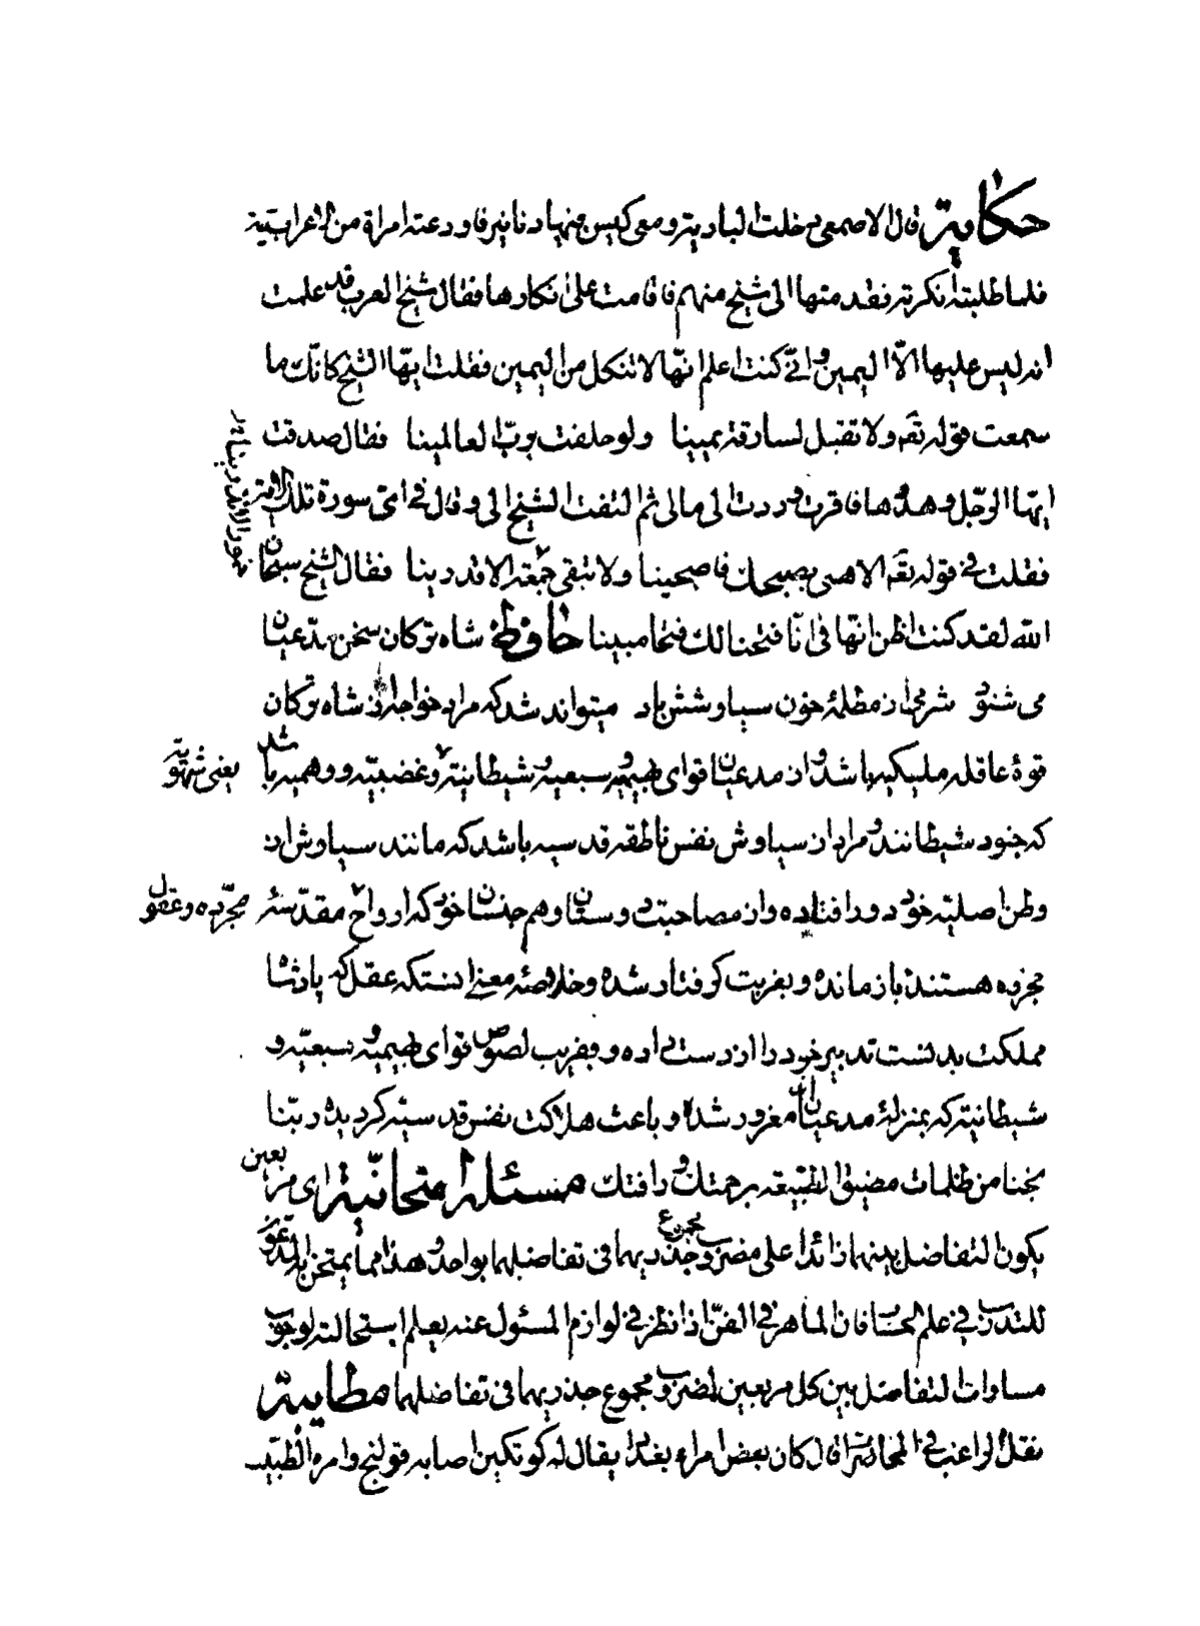 حكاية قال الاصمعى دخلت البادية ومعى كيس فيها دنانير فاودعته امراة من الاعرابية
فلما طلبته انكرته فقدمتها الى شيخ منهم فاقامت على انكارها فقال شيخ العرب قد علمت
انه ليس عليها الّا اليمين وانّى كنت اعلم انّها لا تنكل من اليمين فقلت ايّها الشيخ كانّك ما
سمعت قوله تعه ولا تقبل لسارقة يمينا ولو حلفت بربّ العالمينا فقال صدقت
ايّها الرجل وهدّدها فاقرت وردت الى مالى ثم التفت الشيخ الى وقال فى اىّ سورة تلك الاية
فقلت فى قوله تعه الا هبى بصحنك فاصبحينا ولا تبقى خمور الاندرينا فقال الشيخ سبحان
خمور الاندرينا
الله لقد كنت اظن انّها فى انّا فتحنا لك فتحا مبينا حافظ شاه تركان سخن مدّعيان
مى شنود شرمى از مظلمهٔ خون سياوشش باد ميتواند شد كه مراد خواجه از شاه تركان
قوهٔ عاقله مليكيه باشد و از مدعيان قواى بهيميه و سبعيه و شيطانيه و غضبيّه و وهميه باشد
يعنى شهويّه
كه جنود شيطانند و مراد از سياوش نفس ناطقه قدسيه باشد كه مانند سياوش از
وطن اصليّه خود دور افتاده و از مصاحبت دوستان و هم جنسان خود كه ارواح مقدّسهٔ
مجرّده و عقول
مجرّده هستند باز مانده و بغربت گرفتار شده و خلاصهٔ معنى انستكه عقل كه پادشاه
مملكت بدنست تدبير خود را از دست داده و بفريب لصوص قواى بهيميه و سبعيّه و
شيطانيّه كه بمنزلهٔ مدعيان اند مغرور شده و باعث هلاكت نفس قدسيّه گرديده ربّنا
نجنا من ظلمات مضيق الطبيعة برحمتك و رافتك مسئله امتحانّية اى مربعين
يكون التفاضل بينهما زائدا على مضروب مجموع جذريهما فى تفاضلهما بواحد و هذا مما يمتحن به المدّعون
للتدرب فى علم الحساب فان الماهر فى الفنّ اذا نظر فى لوازم المسئول عنه يعلم استحالته لوجوب
مساوات التفاضل بين كل مربعين لمضروب مجموع جذريهما فى تفاضلهما مطايبة
نقل الراغب فى المحاضرات قال كان بعض امراء بغداد يقال له كوتكين اصابه قولنج وامره الطبيب